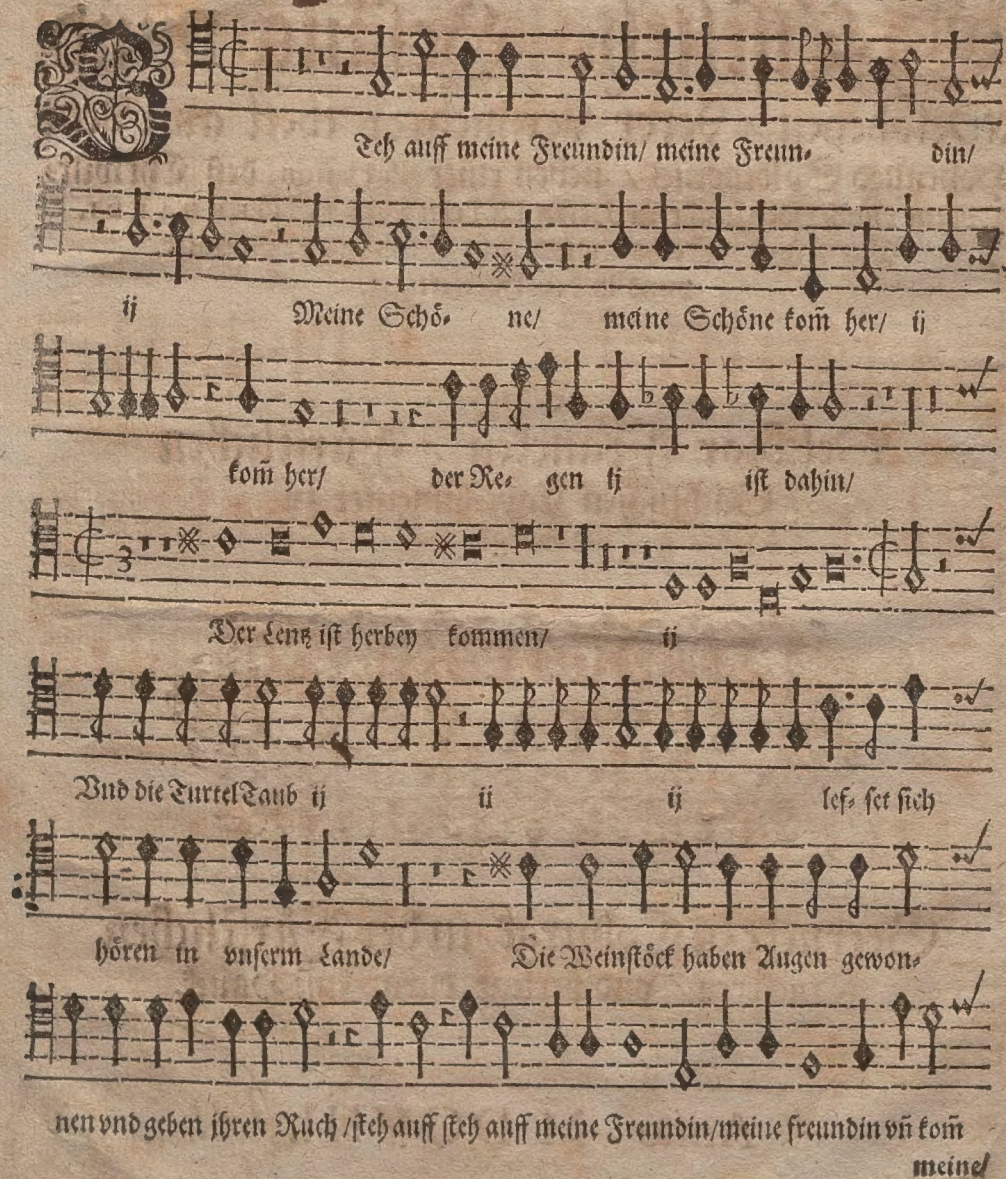 STeh auff meine Freundin/ meine Freun- din/
ij Meine Schö- ne/ meine Schöne kom̃ her/ ij
kom̃ her/ der Re- gen ij ist dahin/
3
Der Lentz ist herbey kommen/ ij
Vnd die TurtelTaub ij ij ij les- set sich
hören in vnserm Lande/ Die Weinstöck haben Augen gewon-
nen vnd geben jhren Ruch /steh auff steh auff meine Freundin/meine freundin vñ kom̃
meine/